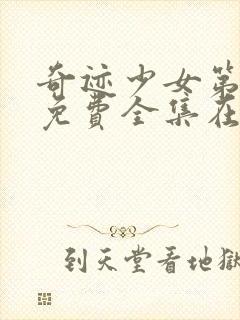 奇迹少女第
免費全集在
到天堂看地獄